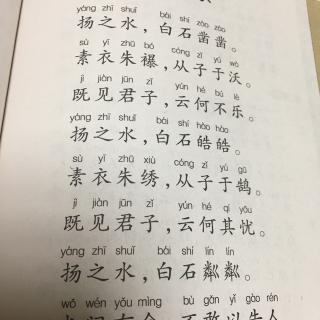 yáng zhī shuǐ bái shí záo záo
扬之水,白石凿凿。
sù yī zhū bó cóng zǐ yú wò
素衣朱襮,从子于沃。
jì jiàn jūn zǐ yún hé bù lè
既见君子,云何不乐。
yáng zhī shuǐ bái shí hào hào
扬之水,白石皓皓。
sù yī zhū xiù cóng zǐ yú gǔ
素衣朱绣,从子于鹄。
jì jiàn jūn zǐ yún hé qí yōu
既见君子,云何其忧。
yáng zhī shuǐ bái shí lín lín
扬之水,白石粼粼。
wǒ wén yǒu mìng bù gǎn yǐ gào rén